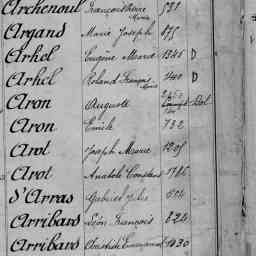 Archenoul François Pierre Marie 531
Argand Marie Joseph 875
Arhel Eugène Marie 1245 D
Arhel Roland François Marie 140 D
Aron Auguste
Aron Emile 732
Arot Joseph Marie 1205
Arot Anatole Constant 1786
D'Arras Gabriel Jules 604
Arribars Léon François 824
Arribars Emmanuel 1030